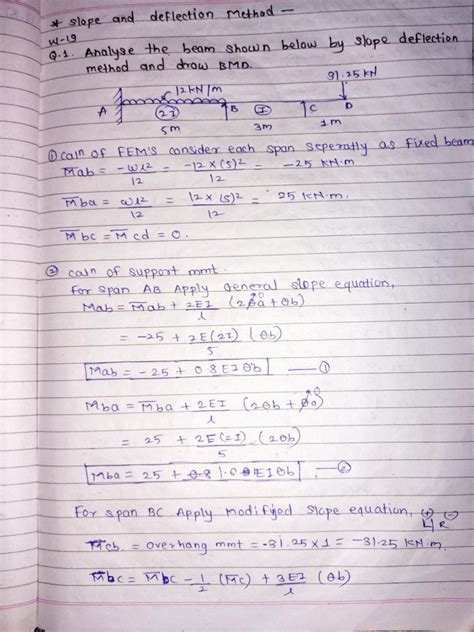 * slope and deflection Method —
W-19
Q.1. Analyse the beam shown below by slope deflection
method and draw BMD.
31.25 KN
12KN/m
A (2I) B (I) C D
5m 3m 1m
① caln of FEM's consider each span seperatly as fixed beam
M̅ab = -wl²/12 = -12×(5)²/12 = -25 KN.m
M̅ba = wl²/12 = 12×(5)²/12 = 25 KN.m.
M̅bc = M̅cd = 0.
② caln of support mmt.
For span AB Apply General slope equation,
Mab = M̅ab + 2EI/l (2θa⁰ + θb)
= -25 + 2E(2I)/5 (θb)
Mab = -25 + 0.8EIθb —①
Mba = M̅ba + 2EI/l (2θb + θa⁰)
= 25 + 2E(2I)/5 (2θb)
Mba = 25 + 1.6EIθb —②
For span BC Apply modified slope equation, (+) (-)
L R
M̅cb = overhang mmt = -31.25×1 = -31.25 KN.m
M̅bc = M̅bc - 1/2 (M̅c) + 3EI/l (θb)